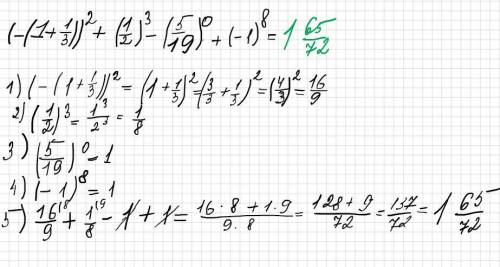 (-(1+1/3))² + (1/2)³ - (5/19)⁰ + (-1)⁸ = 1 65/72
1) (-(1+1/3))² = (1+1/3)² = (3/3+1/3)² = (4/3)² = 16/9
2) (1/2)³ = 1³/2³ = 1/8
3) (5/19)⁰ = 1
4) (-1)⁸ = 1
5) 16/9 ⁽⁸ + 1/8 ⁽⁹ - 1 + 1 = 16·8+1·9/9·8 = 128+9/72 = 137/72 = 1 65/72